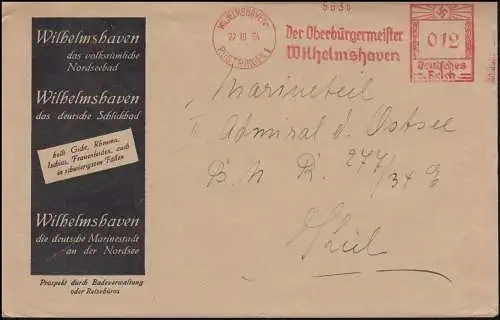 Wilhelmshaven
das volkstümliche
Nordseebad
Wilhelmshaven
das deutsche Schlickbad
heilt Gicht, Rheuma,
Ischias, Frauenleiden, auch
in schwierigsten Fällen
Wilhelmshaven
die deutsche Marinestadt
an der Nordsee
Prospekt durch Badeverwaltung
oder Reisebüros
WILHELMSHAVEN-
RÜSTRINGEN 1
Der Oberbürgermeister
Wilhelmshaven
012
Deutsches
Reich
Marineteil
II Admiral d. Ostsee
B. N. R. 277/34 G
Kiel